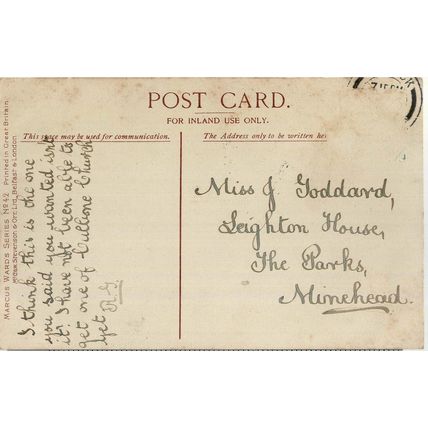 POST CARD.
FOR INLAND USE ONLY.
This space may be used for communication.
The Address only to be written he
MARCUS WARDS SERIES No 42 Printed in Great Britain.
McCaw, Stevenson & Orr, Ltd., Belfast & London.
I think this is the one
you said you wanted isnt
it? I have not been able to
get one of Culbone Church
yet
Miss J. Goddard,
Leighton House,
The Parks,
Minehead.